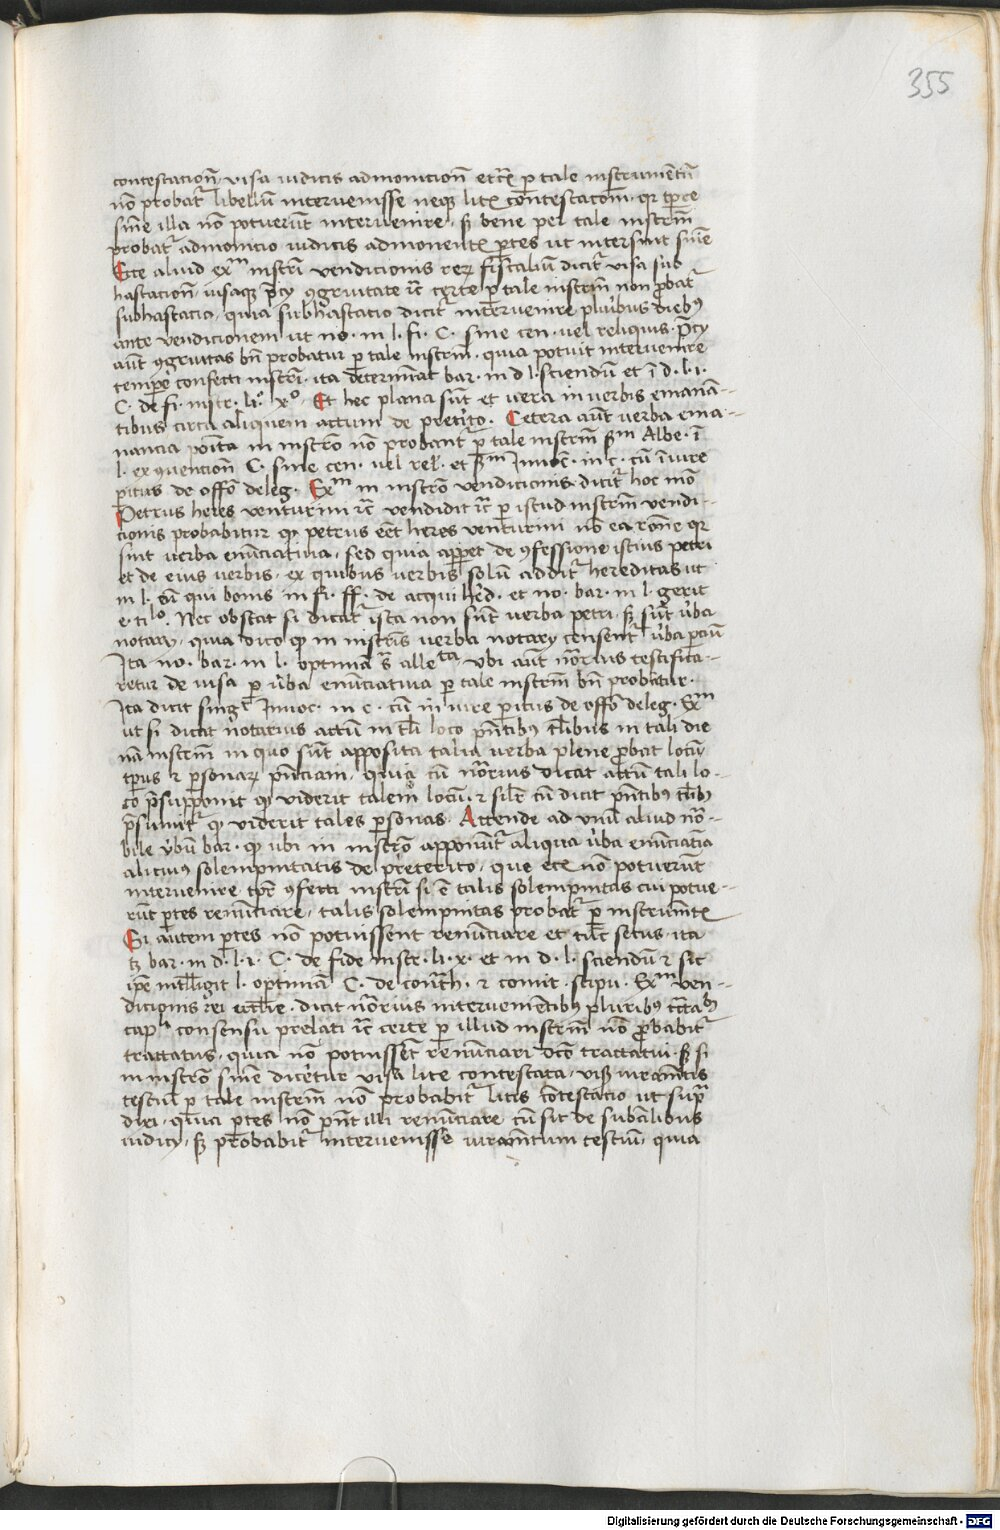 355
contestacion̄ visa iudicis admonicion̄ etc̄ p tale instrumentū
nō probatr libellū intervenisse neqꝫ litꝭ contestacom̄ qr tp̄re
sn̄ie illa nō potuerūt intervenire, sꝫ bene per tale instrm̄
probatr admonicio iudicis admonentꝭ ptes ut intersint sn̄ie
Ecce aliud exm instri vendicionis reꝝ fiscaliū dicitr visa sub
hastacion̄ visaqꝫ p̄cy ꝯgruitate ic̄ certe p tale instrm̄ non pbatr
subhastacio, quia subhastacio dicitr intervenire pluribus diebꝰ
ante vendicionem ut no. in l. fi. C. sine cen. vel reliquis. p̄cy
aūt ꝯgruitas bn̄ probatur p tale instrm̄. quia potuit intervenire
tempore confecti instri. ita determinat bar. in d l. sciendū et ī d. l. i.
C. de fi. instr. li. xo. Et hec plana sūt et vera in verbis emanan-
tibus circa aliquem actum de preterito. Cetera aūt verba enu-
nancia poīta in instrō nō probantr p tale instrm̄ sm Albe. ī
l. exquencion̄ C. sine cen. vel rel. et sm Innoc. in c. cū ī iure
peritus de offō deleg. Exm in instrō vendicionis dicitr hoc mō
Petrus heres venturini ic̄ vendidit ic̄ p istud instrm̄ vendi-
cionis probabitur qꝫ petrus eēt heres venturini nō ea rōne qr
sint verba enūciativa, sed quia apparet de ꝯfessione istius petri
et de eius verbis, ex quibus verbis solū additr hereditas ut
in l. si qui bonis in fi. ff. de acqui hēd. et no. bar. in l. gerit
e. tilo. Nec obstat si dicatr ista non sūt verba petri, sꝫ sūt v̄ba
notary, quia dico qꝫ in instris verba notary censentr v̄ba pciū
Ita no. bar. in l. optimā s̄ allecta vbi aūt nōrius testifica-
retur de visa p v̄ba enūciativa p tale instrm̄ bn̄ probatur.
Ita dicit singr Innoc. in c. cū in iure peritus de offō deleg. Exm
ut si dicat notarius actū in tali loco pn̄tibꝰ tal̄ibus in tali die
nā instrm̄ in quo sūt apposita talia verba plene pbat locū
tp̄us ⁊ psonaꝝ pn̄ciam, quia cū nōrius dicat actū tali lo-
co p̄supponit qꝫ viderit talem locū. ⁊ silr̄ cū dicit pn̄tibꝰ tal̄ibꝰ
p̄sumitr qꝫ viderit tales psonas. Attende ad unū aliud no-
bile v̄bū bar. qꝫ ubi in instrō apponūtr aliqua v̄ba enūciatīa
alicuiꝰ solempnitatis de preterito, que ecꝭ nō potuerūt
intervenire tpr̄e ꝯfecti instri si ē talis solempnitas cui potue-
rūt ptes renūciare, talis solempnitas probatr p instrumētꝭ
Si autem ptes nō potuissent renūciare et tūc secus. ita
tꝫ bar. in d. l. i. C. de fide instr. li. x. et in d. l. sciendū ⁊ sic
ip̄e intelligit l. optimā C. de contrh. ⁊ comit. stipu. Exm ven-
dicionis rei ecclie. dicit nōrius intervenientibꝰ pluribus tractabꝰ
capli consensu prelati ic̄ certe p illud instrm̄ nō probabitr
tractatus, quia nō potuissēt renūciari dc̄o tractatui, sꝫ si
in instrō sn̄ie dicetur visa lite contestata, visꝫ iuramētis
testiū p tale instrm̄ nō probabitr litis cōtestacio ut supra
dixi, quia ptes nō pn̄t illi renūciare cū sit de subn̄alibus
iudicy, sꝫ probabitr intervenisse iuramētum testiū, quia
Digitalisierung gefördert durch die Deutsche Forschungsgemeinschaft - DFG